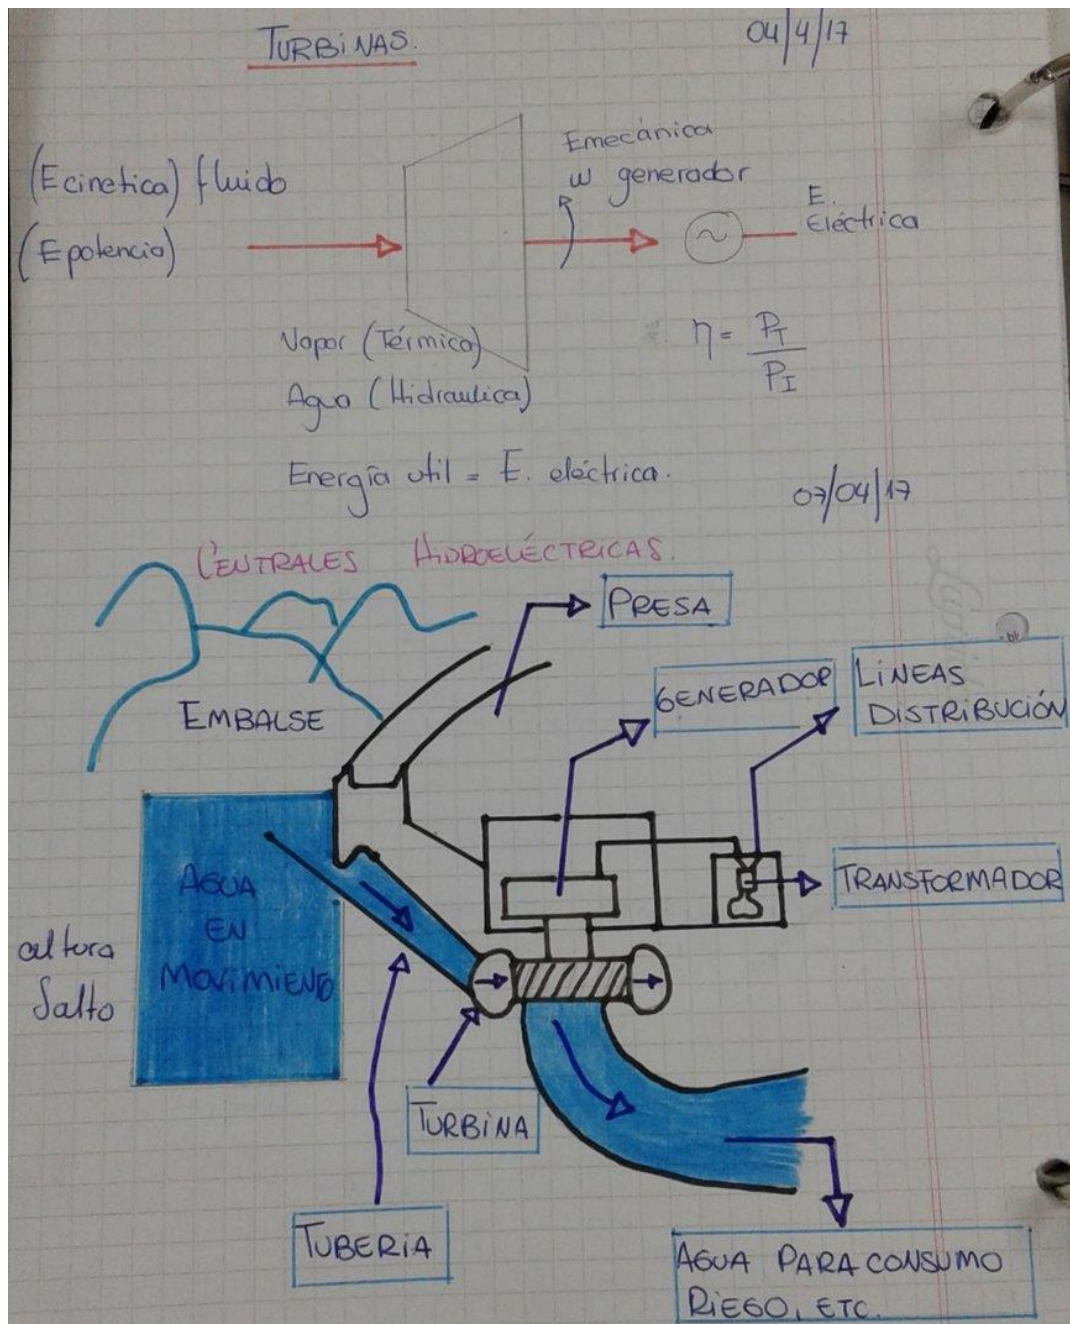 TURBINAS.
04/4/17
(Ecinetica) fluido
(Epotencia)
Emecánica
w generador
E.
Eléctrica
Vapor (Térmica)
Agua (Hidraulica)
η = PT
PI
Energía util = E. eléctrica.
07/04/17
CENTRALES HIDROELÉCTRICAS.
PRESA
GENERADOR
LINEAS
DISTRIBUCIÓN
EMBALSE
AGUA
EN
MOVIMIENTO
TRANSFORMADOR
altura
Salto
TURBINA
TUBERIA
AGUA PARA CONSUMO
RIEGO, ETC.